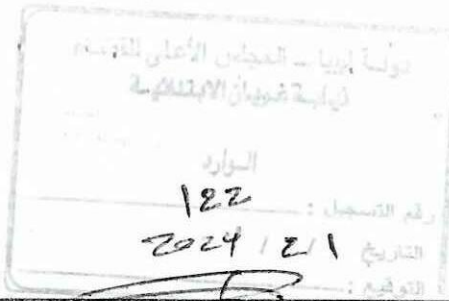 دولة ليبيا - المجلس الأعلى للقضاء
نيابة غريان الابتدائية
الوارد
رقم التسجيل : 122
التاريخ 1 / 2 / 2024
التوقيع :